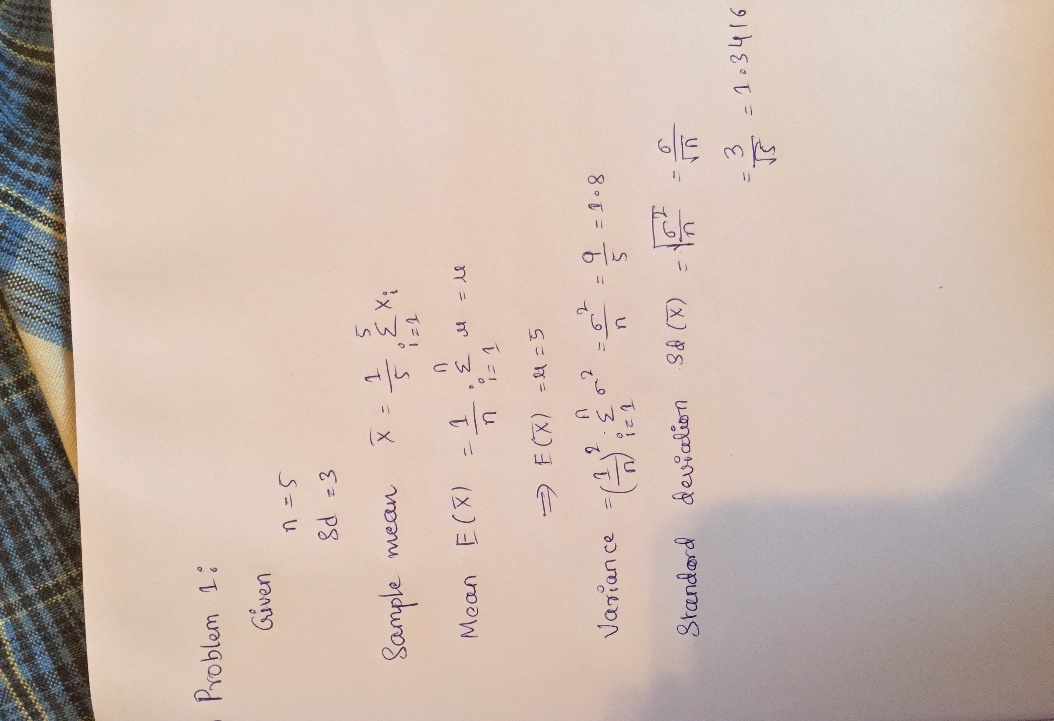 Problem 1:
Given
n = 5
Sd = 3
Sample mean X̄ = 1/5 . 5 Σ i=1 Xi
Mean E(X̄) = 1/n . n Σ i=1 μ = μ
⇒ E(X̄) = μ = 5
Variance = (1/n)² . n Σ i=1 σ² = σ²/n = 9/5 = 1.8
Standard deviation sd (X̄) = √σ²/n = σ/√n
= 3/√5 = 1.3416